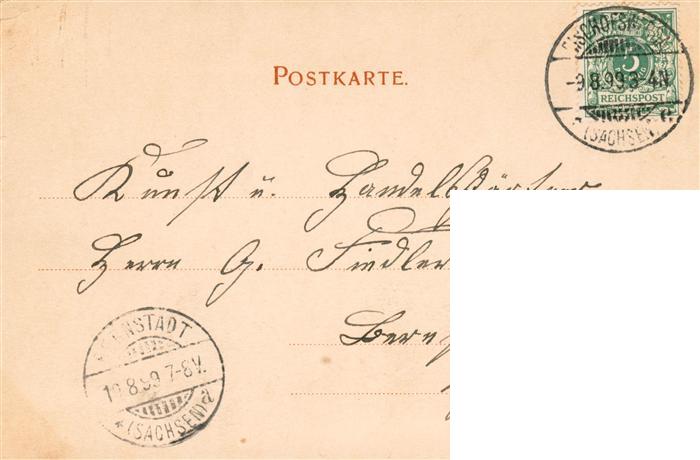 POSTKARTE.
5
REICHSPOST
BISCHOFSWERDA
-9.8.99 3-4N
(SACHSEN)
Kunst u. Handelsgärtner
Herrn G. Fiedler
BERNSTADT
10.8.99 7-8V.
*(SACHSEN)a